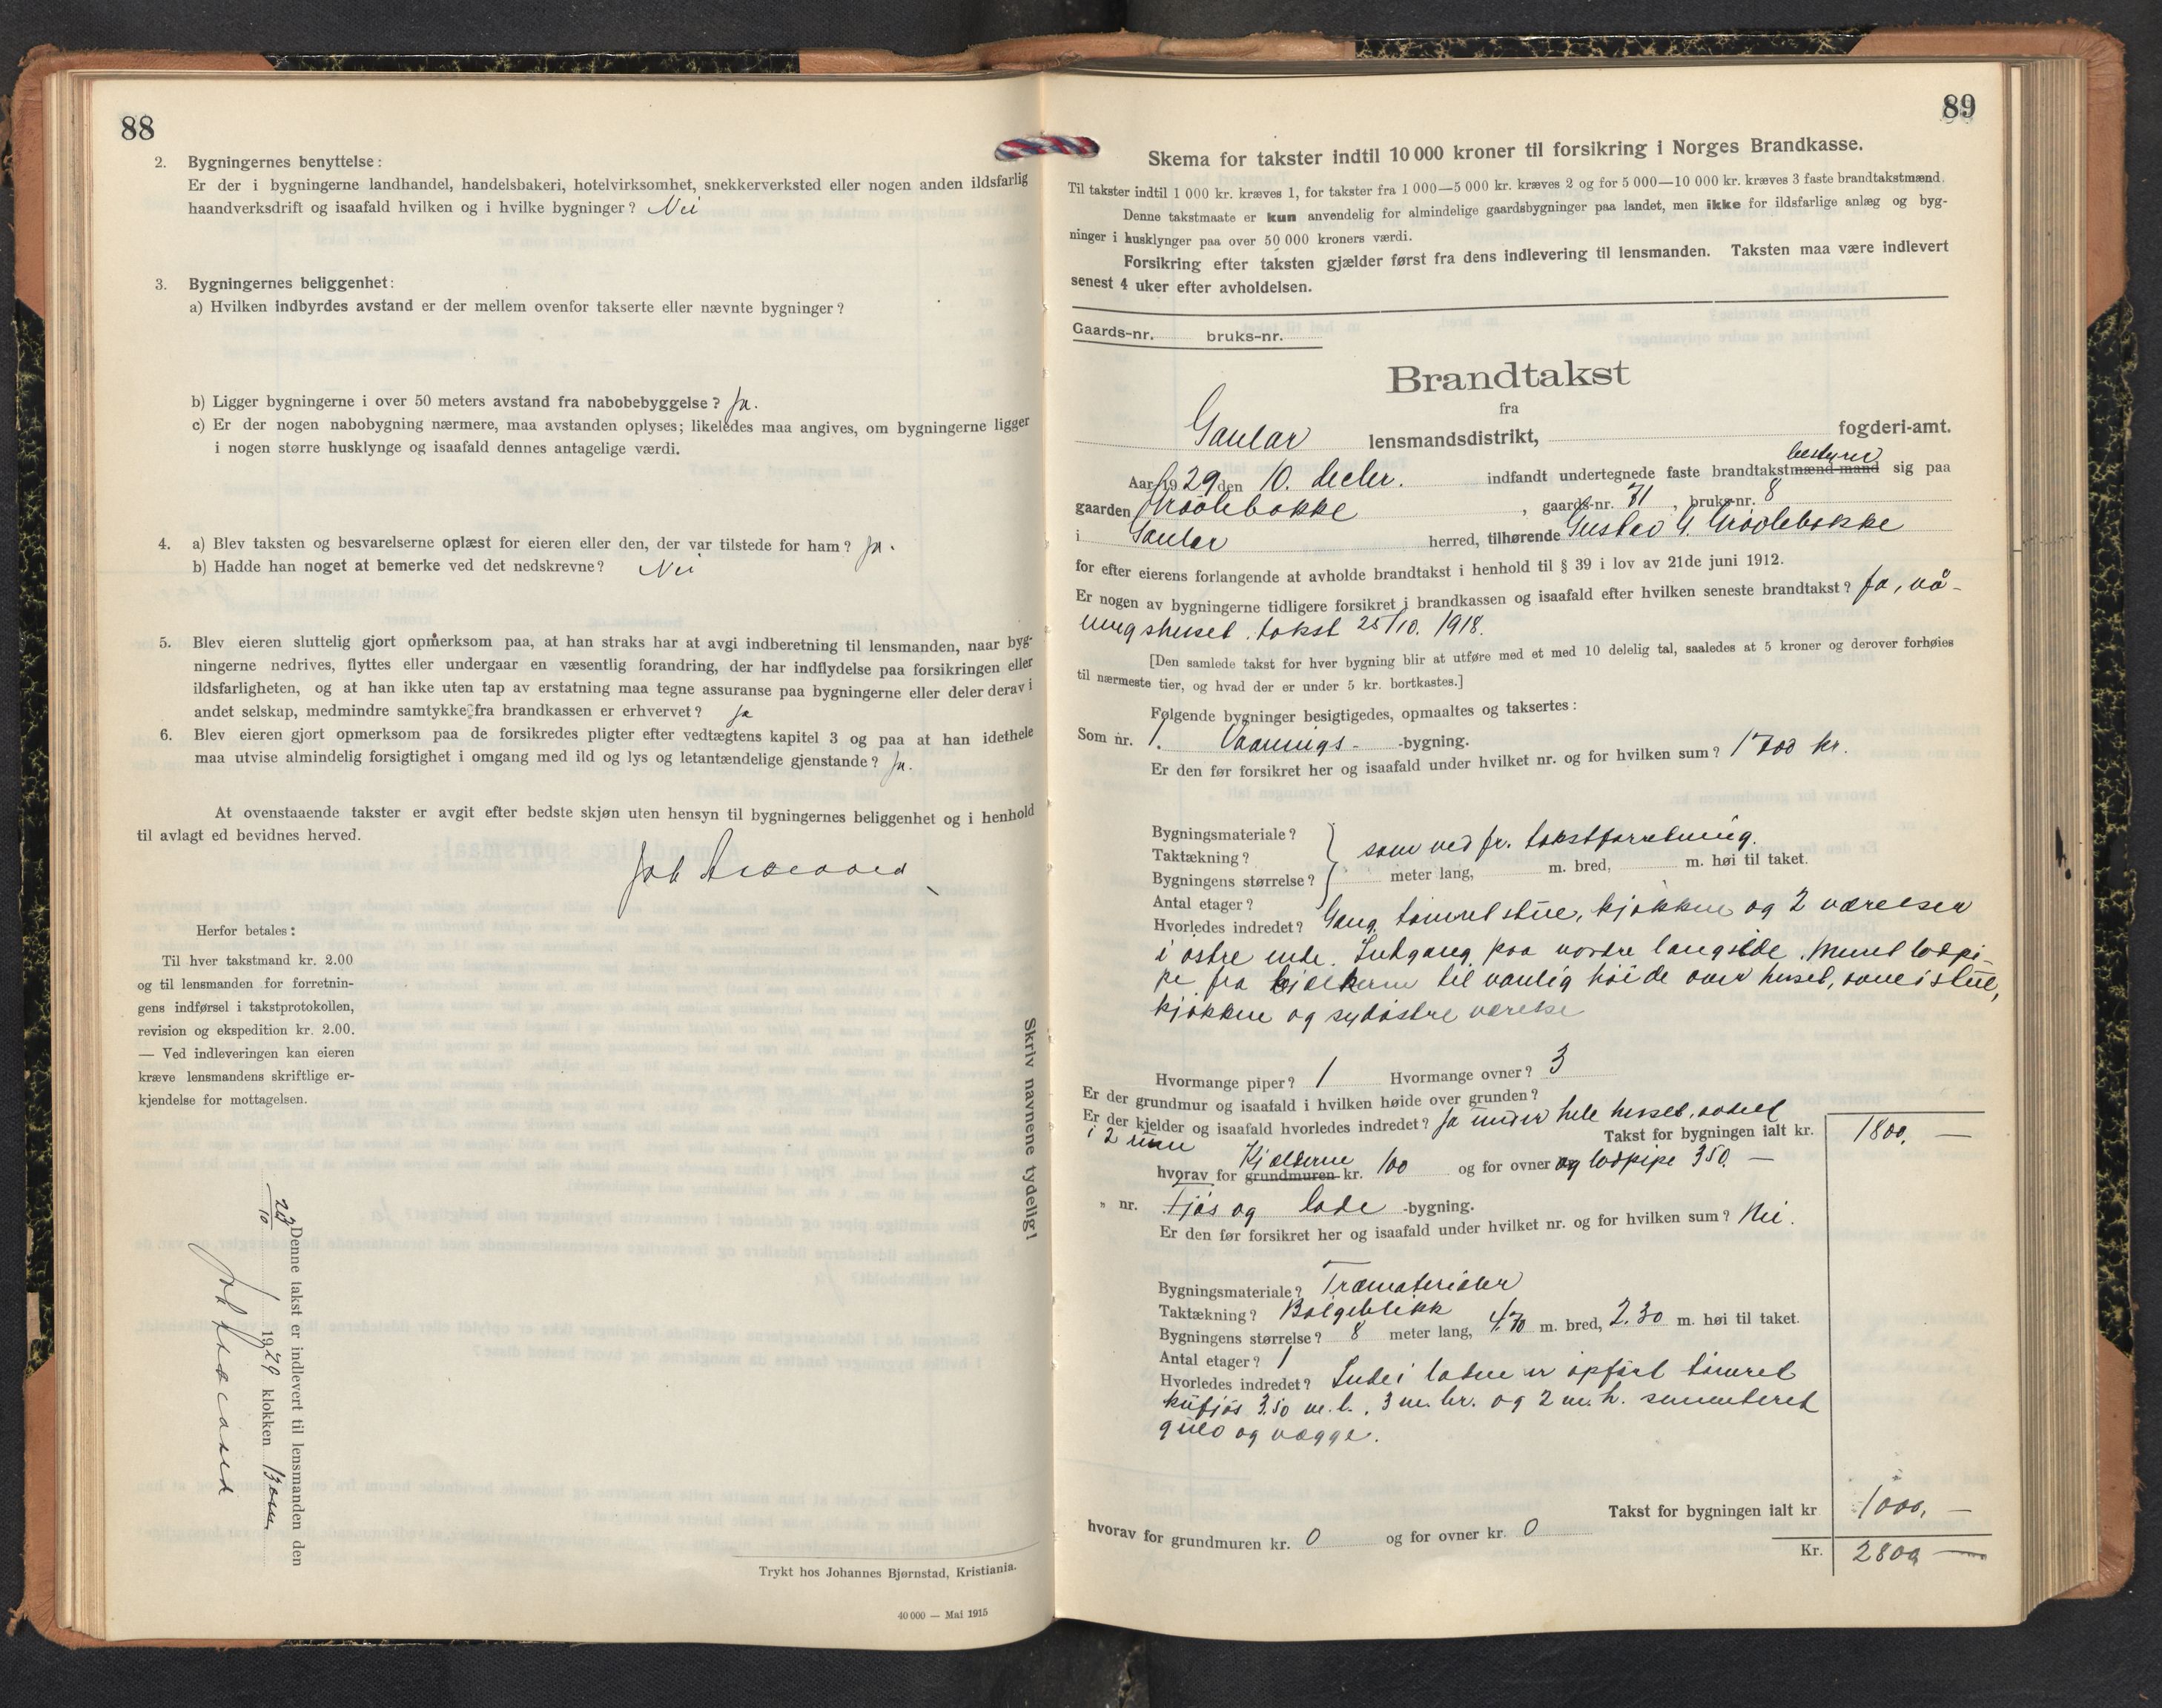 88
2. Bygningernes benyttelse:
Er der i bygningerne landhandel, handelsbakeri, hotelvirksomhet, snekkerverksted eller nogen anden ildsfarlig
haandverksdrift og isaafald hvilken og i hvilke bygninger? Nei
3. Bygningernes beliggenhet:
a) Hvilken indbyrdes avstand er der mellem ovenfor takserte eller nævnte bygninger?
b) Ligger bygningerne i over 50 meters avstand fra nabobebyggelse? Ja.
c) Er der nogen nabobygning nærmere, maa avstanden oplyses; likeledes maa angives, om bygningerne ligger
i nogen større husklynge og isaafald dennes antagelige værdi.
4. a) Blev taksten og besvarelserne oplæst for eieren eller den, der var tilstede for ham? Ja.
b) Hadde han noget at bemerke ved det nedskrevne? Nei
5. Blev eieren sluttelig gjort opmerksom paa, at han straks har at avgi indberetning til lensmanden, naar byg-
ningerne nedrives, flyttes eller undergaar en væsentlig forandring, der har indflydelse paa forsikringen eller
ildsfarligheten, og at han ikke uten tap av erstatning maa tegne assuranse paa bygningerne eller deler derav i
andet selskap, medmindre samtykke fra brandkassen er erhvervet? Ja
6. Blev eieren gjort opmerksom paa de forsikredes pligter efter vedtægtens kapitel 3 og paa at han idethele
maa utvise almindelig forsigtighet i omgang med ild og lys og letantændelige gjenstande? Ja.
At ovenstaaende takster er avgit efter bedste skjøn uten hensyn til bygningernes beliggenhet og i henhold
til avlagt ed bevidnes herved.
Herfor betales:
Til hver takstmand kr. 2.00
og til lensmanden for forretnin-
gens indførsel i takstprotokollen,
revision og ekspedition kr. 2.00.
— Ved indleveringen kan eieren
kræve lensmandens skriftlige er-
kjendelse for mottagelsen.
Skriv navnene tydelig!
Denne takst er indlevert til lensmanden den
1929 klokken
Trykt hos Johannes Bjørnstad, Kristiania.
40 000 — Mai 1915
89
Skema for takster indtil 10 000 kroner til forsikring i Norges Brandkasse.
Til takster indtil 1 000 kr. kræves 1, for takster fra 1 000—5 000 kr. kræves 2 og for 5 000—10 000 kr. kræves 3 faste brandtakstmænd.
Denne takstmaate er kun anvendelig for almindelige gaardsbygninger paa landet, men ikke for ildsfarlige anlæg og byg-
ninger i husklynger paa over 50 000 kroners værdi.
Forsikring efter taksten gjælder først fra dens indlevering til lensmanden. Taksten maa være indlevert
senest 4 uker efter avholdelsen.
Gaards-nr. bruks-nr.
Brandtakst
fra
Gaular lensmandsdistrikt, fogderi-amt.
bestyrer
Aar 1929 den 10. decbr. indfandt undertegnede faste brandtakstmænd-mand sig paa
gaarden , gaards-nr. 71, bruks-nr. 8
i Gaular herred, tilhørende Gustav G.
for efter eierens forlangende at avholde brandtakst i henhold til § 39 i lov av 21de juni 1912.
Er nogen av bygningerne tidligere forsikret i brandkassen og isaafald efter hvilken seneste brandtakst? Ja, vå-
ningshuset, takst 25/10. 1918.
[Den samlede takst for hver bygning blir at utføre med et med 10 delelig tal, saaledes at 5 kroner og derover forhøies
til nærmeste tier, og hvad der er under 5 kr. bortkastes.]
Følgende bygninger besigtigedes, opmaaltes og taksertes:
Som nr. 1. Vaanings- -bygning.
Er den før forsikret her og isaafald under hvilket nr. og for hvilken sum? 1700 kr.
Bygningsmateriale?
Taktækning? som ved fr. takstforretning.
Bygningens størrelse? meter lang, m. bred, m. høi til taket.
Antal etager?
Hvorledes indredet? Gang, tømret stue, kjøkken og 2 værelser
i østre ende. Indgang paa nordre langside. Muret lodpi-
pe fra kjelderen til vanlig høide over huset, ovne i stue,
kjøkken og sydøstre værelse
Hvormange piper? 1 Hvormange ovner? 3
Er der grundmur og isaafald i hvilken høide over grunden?
Er der kjelder og isaafald hvorledes indredet? Ja under hele huset, avdelt
i 2 rum
Takst for bygningen ialt kr. 1800, —
hvorav for grundmuren Kjelderne kr. 100 og for ovner og lodpipe 350. —
" nr. Fjøs og lade -bygning.
Er den før forsikret her og isaafald under hvilket nr. og for hvilken sum? Nei.
Bygningsmateriale? Træmaterialer
Taktækning? Bølgeblikk
Bygningens størrelse? 8 meter lang, 4.70 m. bred, 2.30 m. høi til taket.
Antal etager? 1
Hvorledes indredet? Inde i laden er opført tømret
kufjøs 3.50 m. l., 3 m. br. og 2 m. h. sementeret
gulv og vægge.
Takst for bygningen ialt kr 1000, —
hvorav for grundmuren kr. 0 og for ovner kr. 0
Kr. 2800 —